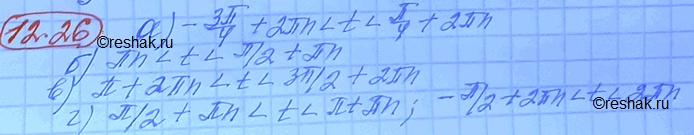 12.26 а) -3π/4 + 2πn < t < π/4 + 2πn
©reshak.ru
б) πn < t < π/2 + πn
в) π + 2πn < t < 3π/2 + 2πn
г) π/2 + πn < t < π + πn; -π/2 + 2πn < t < 2πn
©reshak.ru